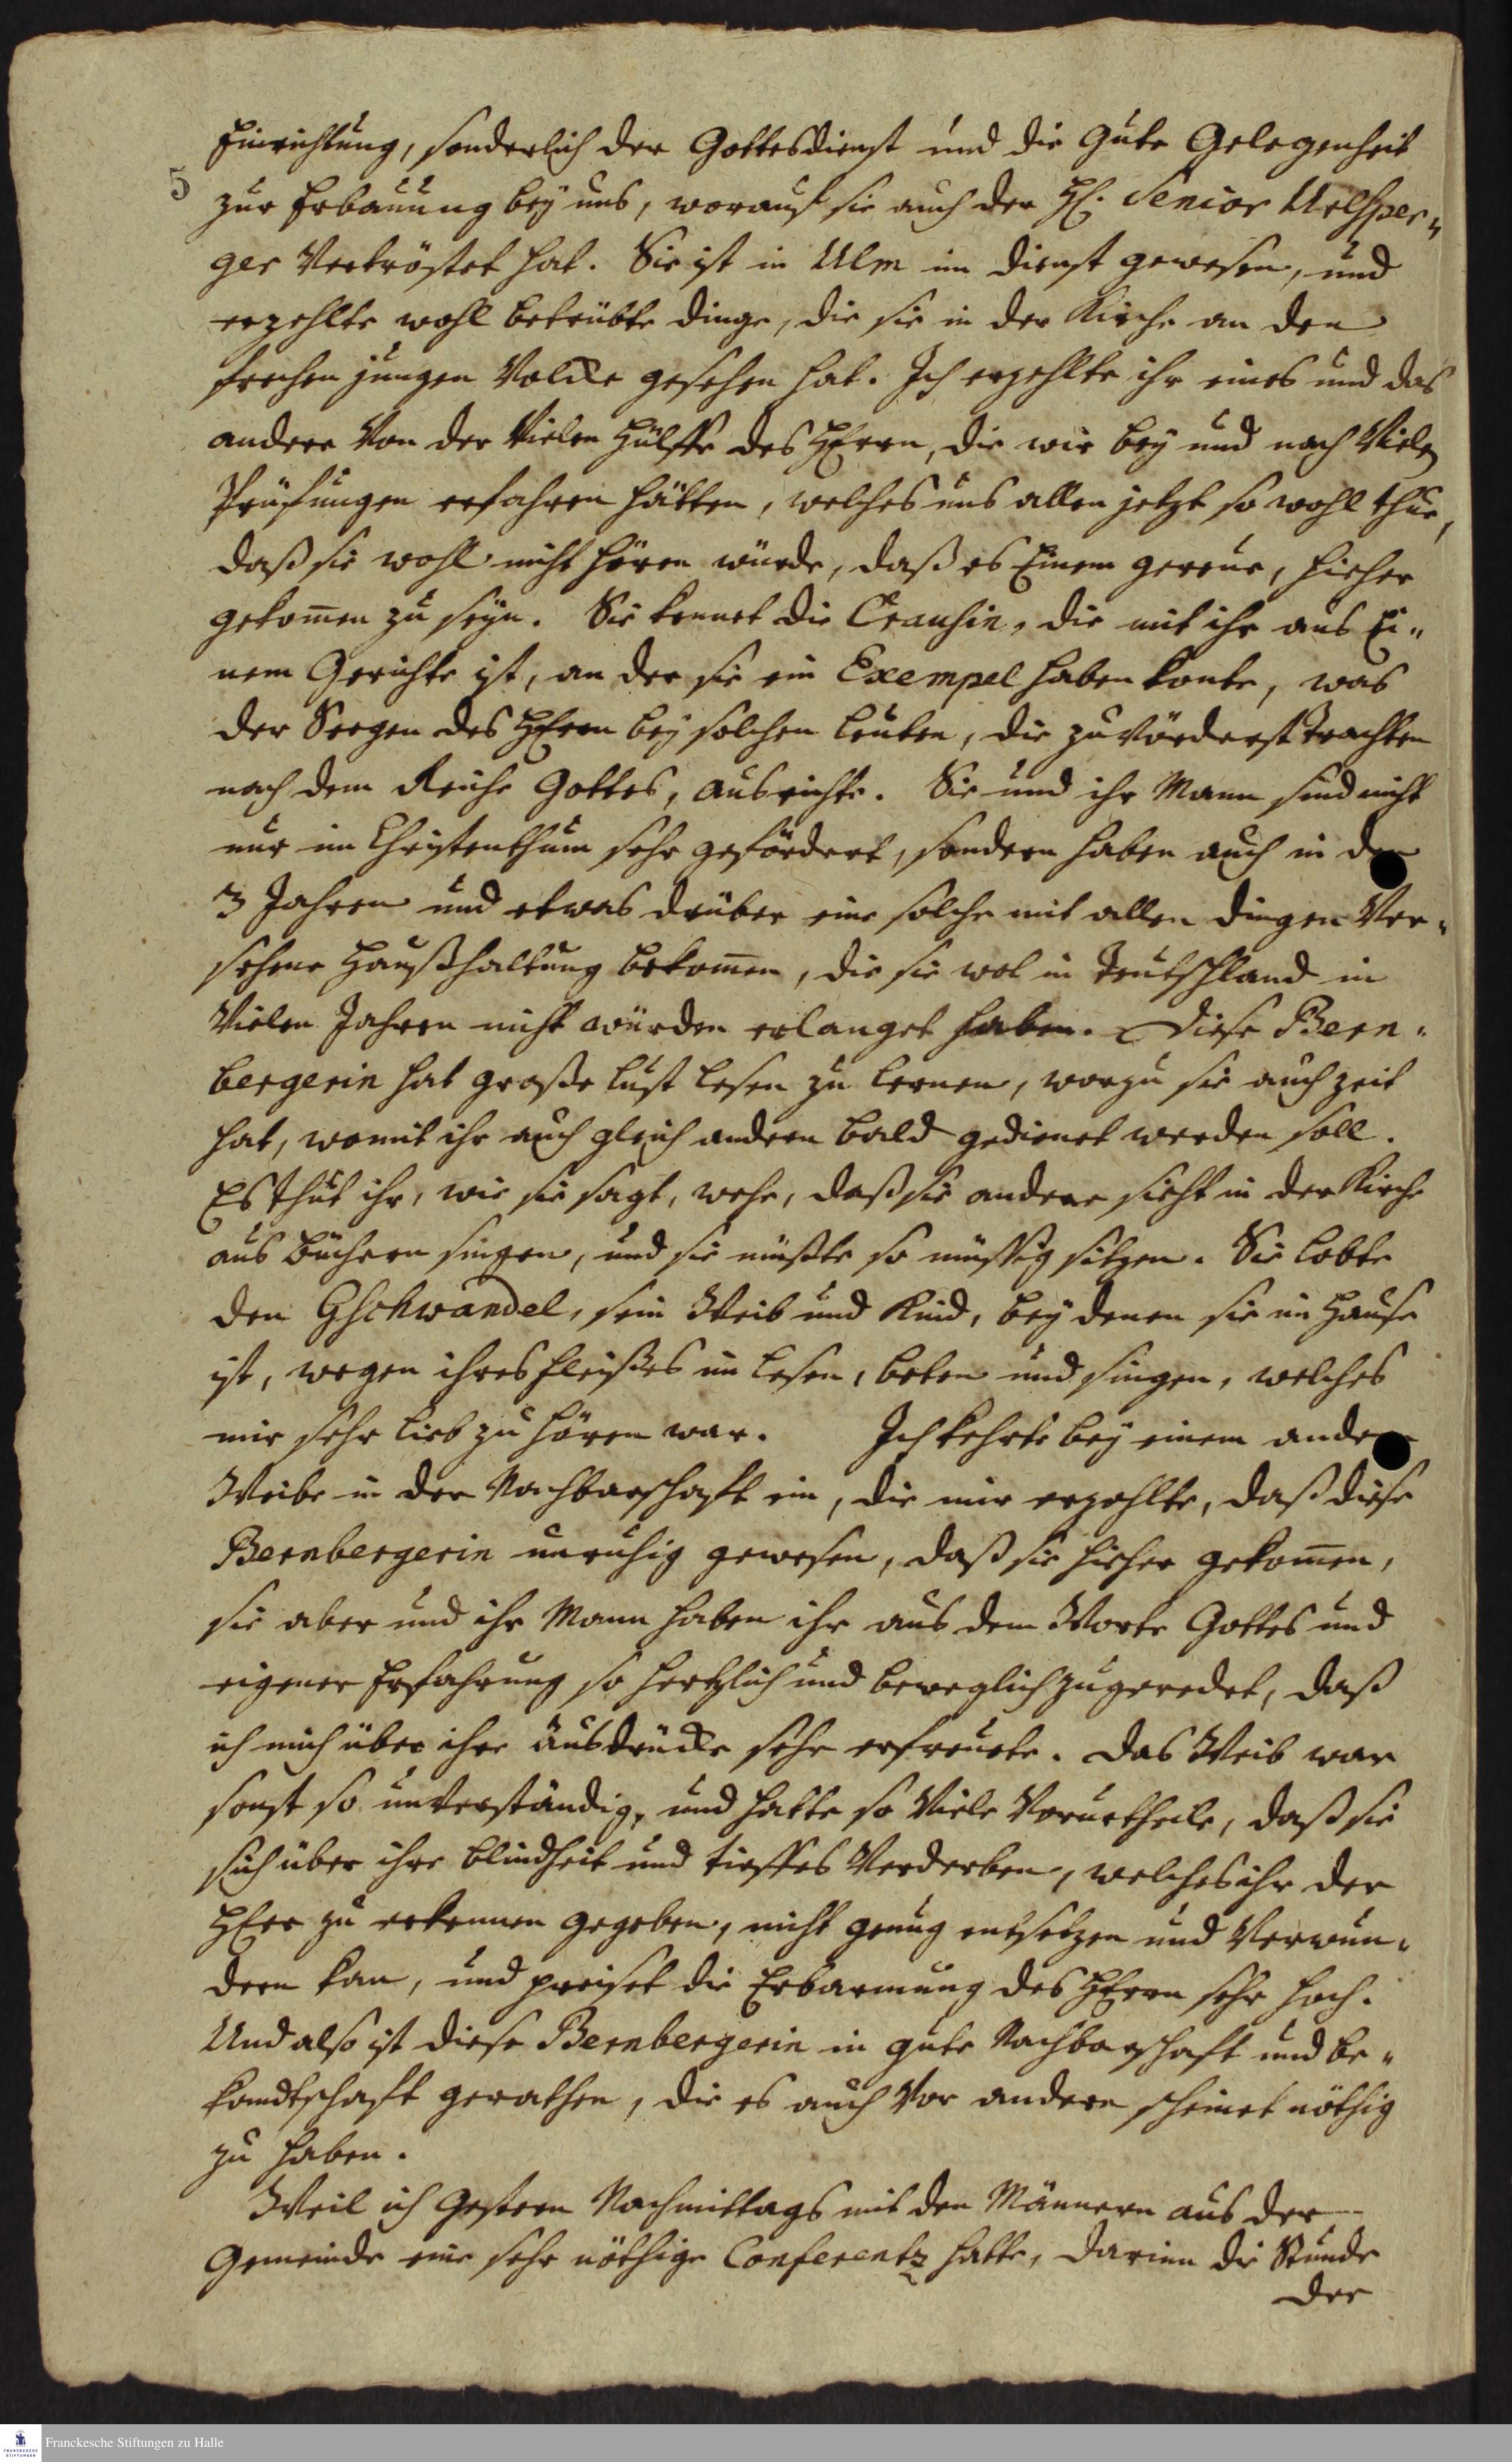 Einrichtung, sonderlich der Gottesdienst und die Gute Gelegenheit
5
zur Erbauung bey uns, worauf sie auch der H. Senior Urlsper¬
ger Vertröstet hat. Sie ist in Ulm im dienst gewesen, und
erzehlte wohl betrübte dinge, die sie in der Kirche an dem
frechen jungen Volcke gesehen hat. Ich erzehlte ihr eines und das
andere Von der Vielen Hülffe des HErrn, die wir bey und nach Vielen
Prüfungen erfahren hätten, welches uns allen jetzt so wohl thue,
daß sie wohl nicht hören würde, daß es Einem gereue, hieher
gekom̄en zu seyn. Sie kennet die Crausin, die mit ihr aus Ei¬
nem Gerichte ist, an der sie ein Exempel haben konte, was
der Seegen des HErrn bey solchen Leuten, die zuvörderst trachten
nach dem Reiche Gottes, ausrichte. Sie und ihr Mann sind nicht
nur im Christenthum sehr gefördert, sondern haben auch in den
3 Jahren und etwas drüber eine solche mit allen dingen Ver¬
sehene Haußhaltung bekom̄en, die sie wol in Teutschland in
Vielen Jahren nicht würden erlanget haben. Diese Bern¬
bergerin hat große Lust lesen zu lernen, worzu sie auch zeit
hat, womit ihr auch gleich andern bald gedienet werden soll.
Es thut ihr, wie sie sagt, wehe, daß sie andere sieht in der Kirche
aus büchern singen, und sie müßte so müssig sitzen. Sie lobte
den Gschwandel, sein Weib und Kind, bey denen sie im Hause
ist, wegen ihres fleißes im lesen, beten und singen, welches
mir sehr lieb zu hören war. Ich kehrte bey einem andern
Weibe in der Nachbarschaft ein, die mir erzehlte, daß diese
Bernbergerin unruhig gewesen, daß sie hieher gekom̄en,
sie aber und ihr Mann haben ihr aus dem Worte Gottes und
eigener Erfahrung so hertzlich und beweglich zugeredet, daß
ich mich über ihre Ausdrücke sehr erfreuete. Das Weib war
sonst so unverständig, und hatte so Viele Vorurtheile, daß sie
sich über ihre blindheit und tieffes Verderben, welches ihr der
HErr zu erkennen gegeben, nicht genug entsetzen und Verwun¬
dern kan, und preiset die Erbarmung des HErrn sehr hoch.
Und also ist diese Bernbergerin in gute Nachbarschaft und be¬
kandtschaft gerathen, die es auch Vor andern scheinet nöthig
zu haben.
Weil ich Gestern Nachmittags mit den Männern aus der
Gemeinde eine sehr nöthige Conferentz hatte, darinn die Stunde
der
Franckesche Stiftungen zu Halle